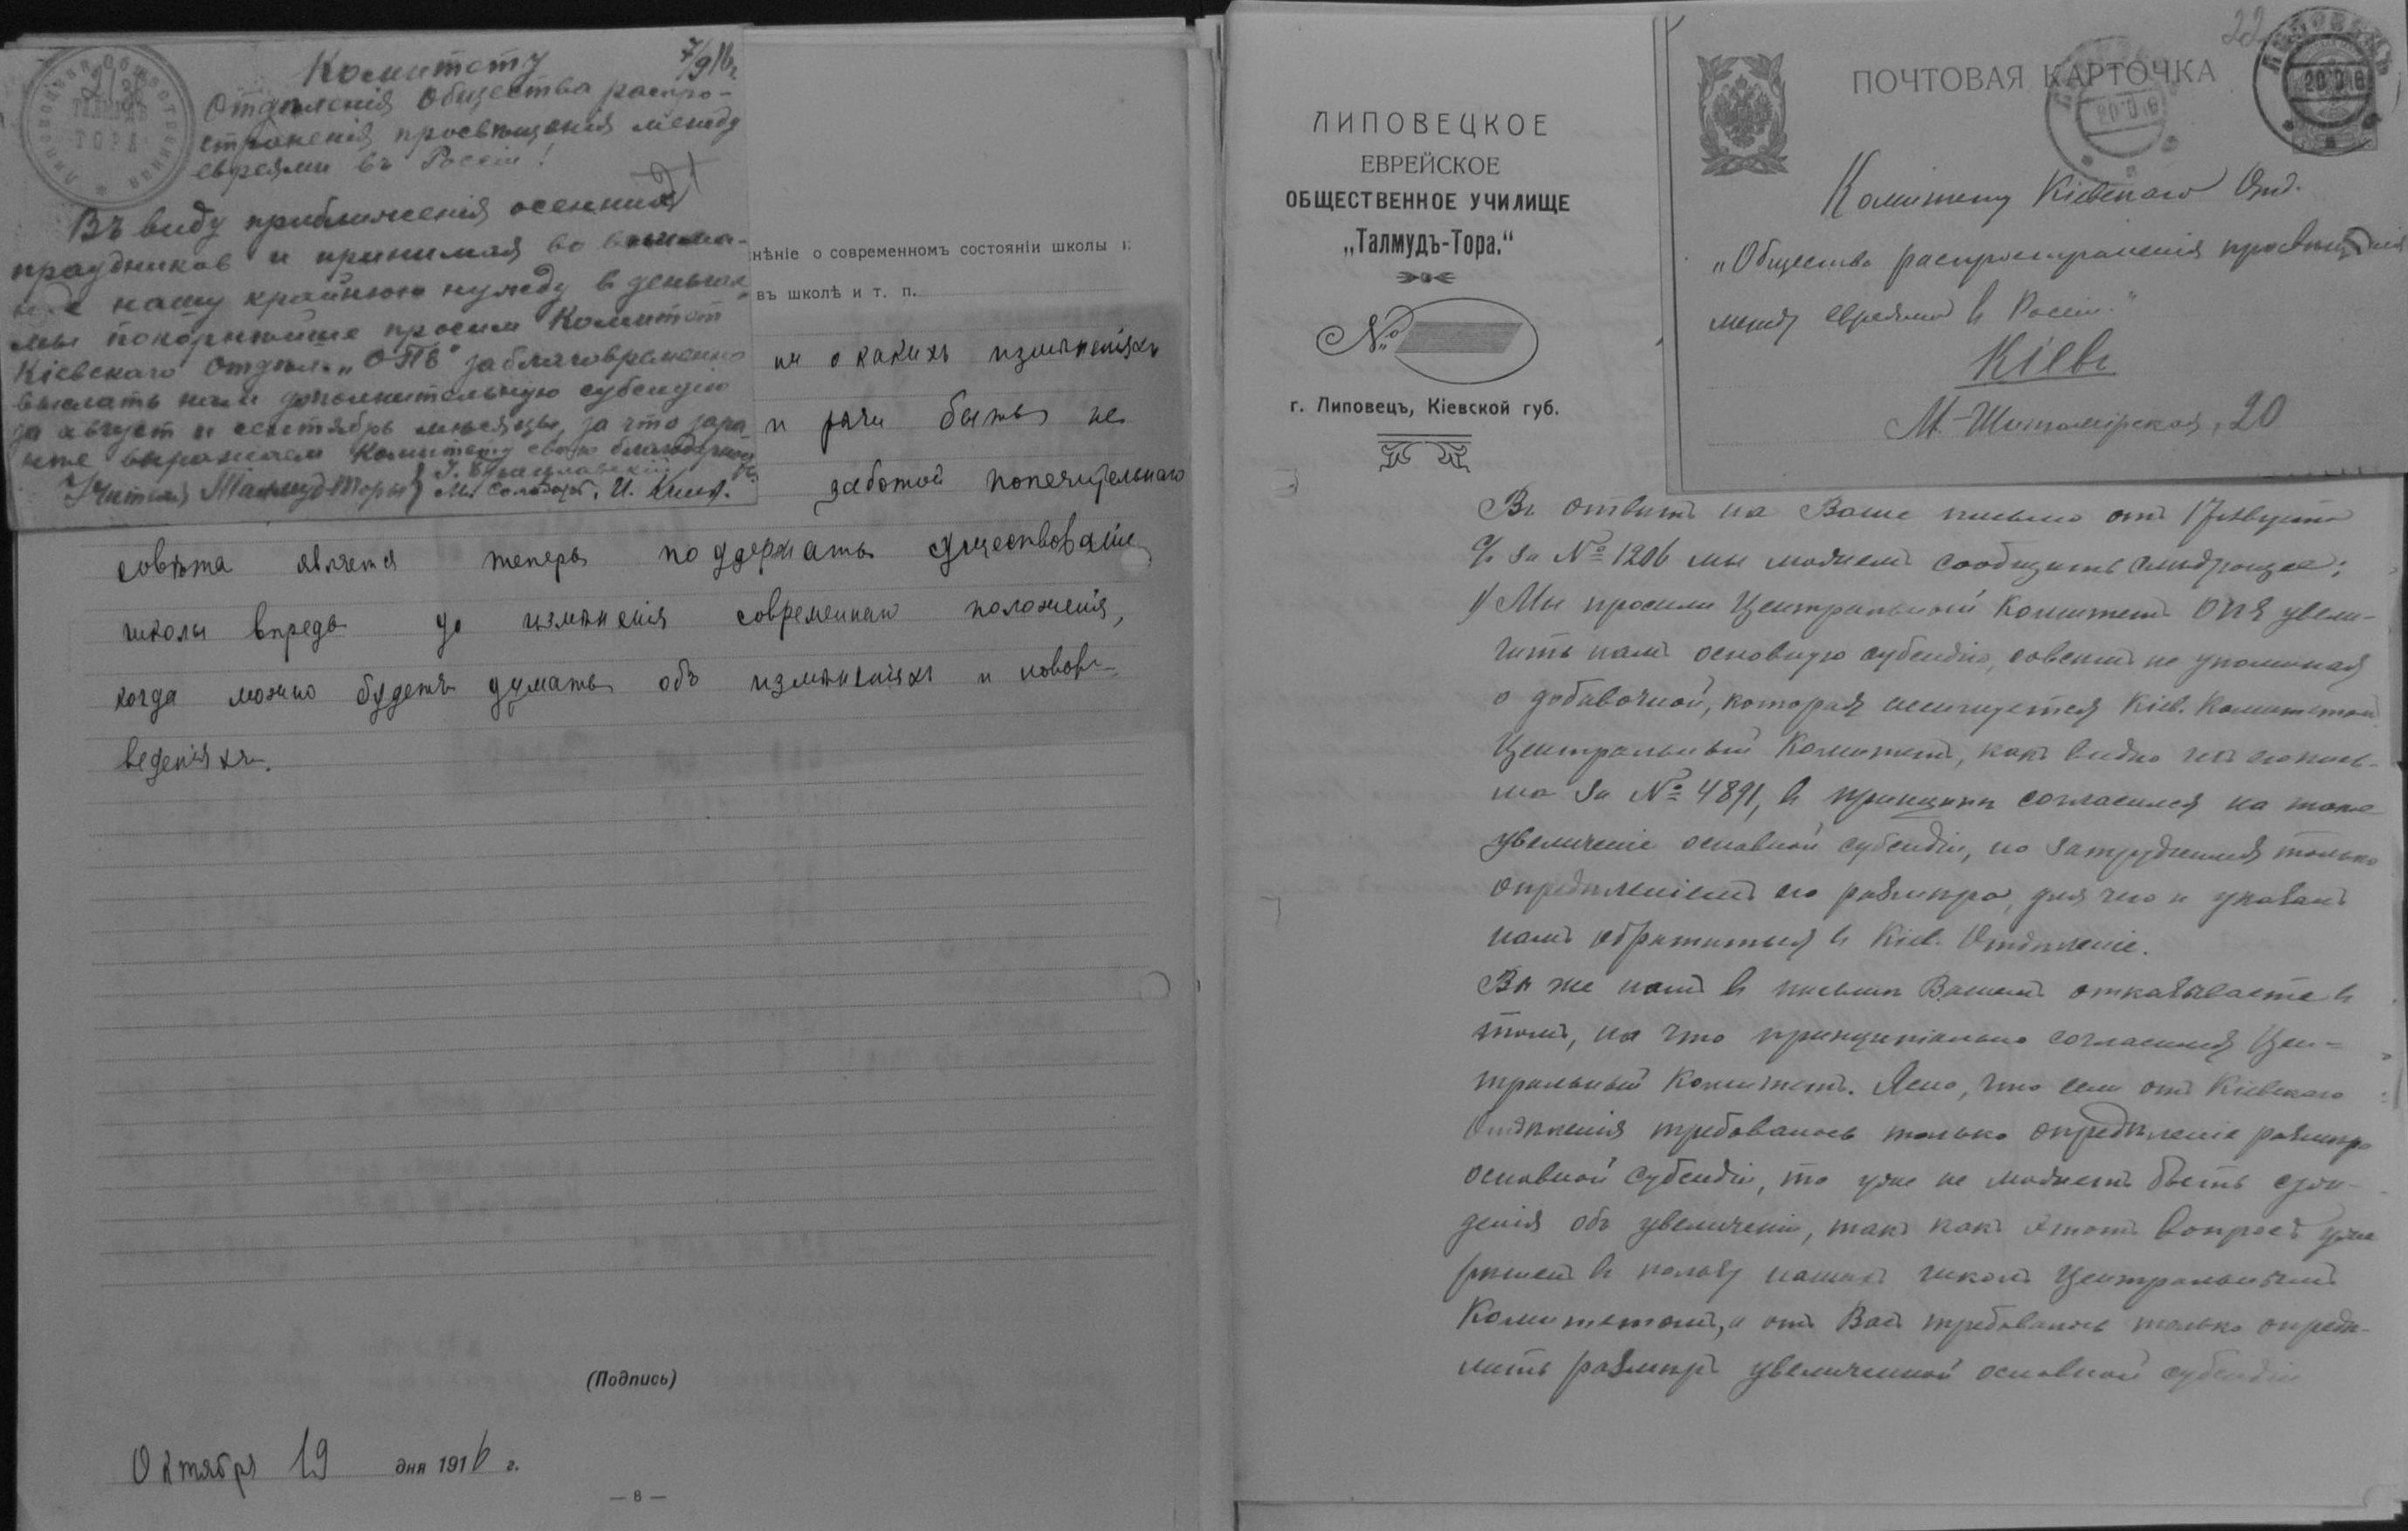 Комитету
7/9 16 г.
Отдѣленія Общества распро-
страненія просвѣщенія между
евреями въ Россіи!
Въ виду приближенія осеннихъ
праздников и принимая во внима-
ніе нашу крайнюю нужду в деньгах,
мы покорнѣйше просим Комитет
Кіевскаго Отдѣл. „ОПЕ" заблаговременно
выслать нам дополнительную субсидію
за август и сентябрь мѣсяцы, за что зара-
нѣе выражаем Комитету свою благодарность.
Учителя Талмуд-Торы
М.
И.
ТАЛМУДЪ
ТОРА
нѣніе о современномъ состояніи школы и
въ школѣ и т. п.
ни о какихъ измѣненіяхъ
и рѣчи быть не
заботой попечительнаго
совѣта является теперь поддержать существованіе
школы впредь до измѣненія современнаго положенія,
когда можно будетъ думать объ измѣненіяхъ и новов-
веденіяхъ.
(Подпись)
Октября 19 дня 1916 г.
— 8 —
ЛИПОВЕЦКОЕ
ЕВРЕЙСКОЕ
ОБЩЕСТВЕННОЕ УЧИЛИЩЕ
„Талмудъ-Тора."
№
г. Липовецъ, Кіевской губ.
22
ПОЧТОВАЯ КАРТОЧКА
ЛИПОВЕЦЪ
20 9 16
Комитету Кіевскаго Отд.
„Общества распространенія просвѣщенія
между евреями в Россіи."
Кіевъ
М.-Житомірская, 20
Въ отвѣтъ на Ваше письмо отъ 17 августа
с/г за № 1206 мы можемъ сообщить слѣдующее:
1/ Мы просили Центральный Комитетъ ОПЕ увели-
чить намъ основную субсидію, совсѣмъ не упоминая
о добавочной, которая ассигнуется Кіев. Комитетомъ
Центральный Комитетъ, какъ видно изъ его пись-
ма за № 4891, в принципѣ согласился на такое
увеличеніе основной субсидіи, но затруднился только
опредѣленіемъ его размѣра, для чего и указалъ
намъ обратиться в Кіев. Отдѣленіе.
Вы же намъ в письмѣ Вашемъ отказываете в
томъ, на что принципіально согласился Цен-
тральный Комитетъ. Ясно, что если отъ Кіевскаго
Отдѣленія требовалось только опредѣленіе размѣра
основной субсидіи, то уже не можетъ быть суж-
денія объ увеличеніи, такъ какъ этотъ вопросъ уже
рѣшенъ в пользу нашихъ школъ Центральнымъ
Комитетомъ, и отъ Васъ требовалось только опредѣ-
лить размѣръ увеличенной основной субсидіи